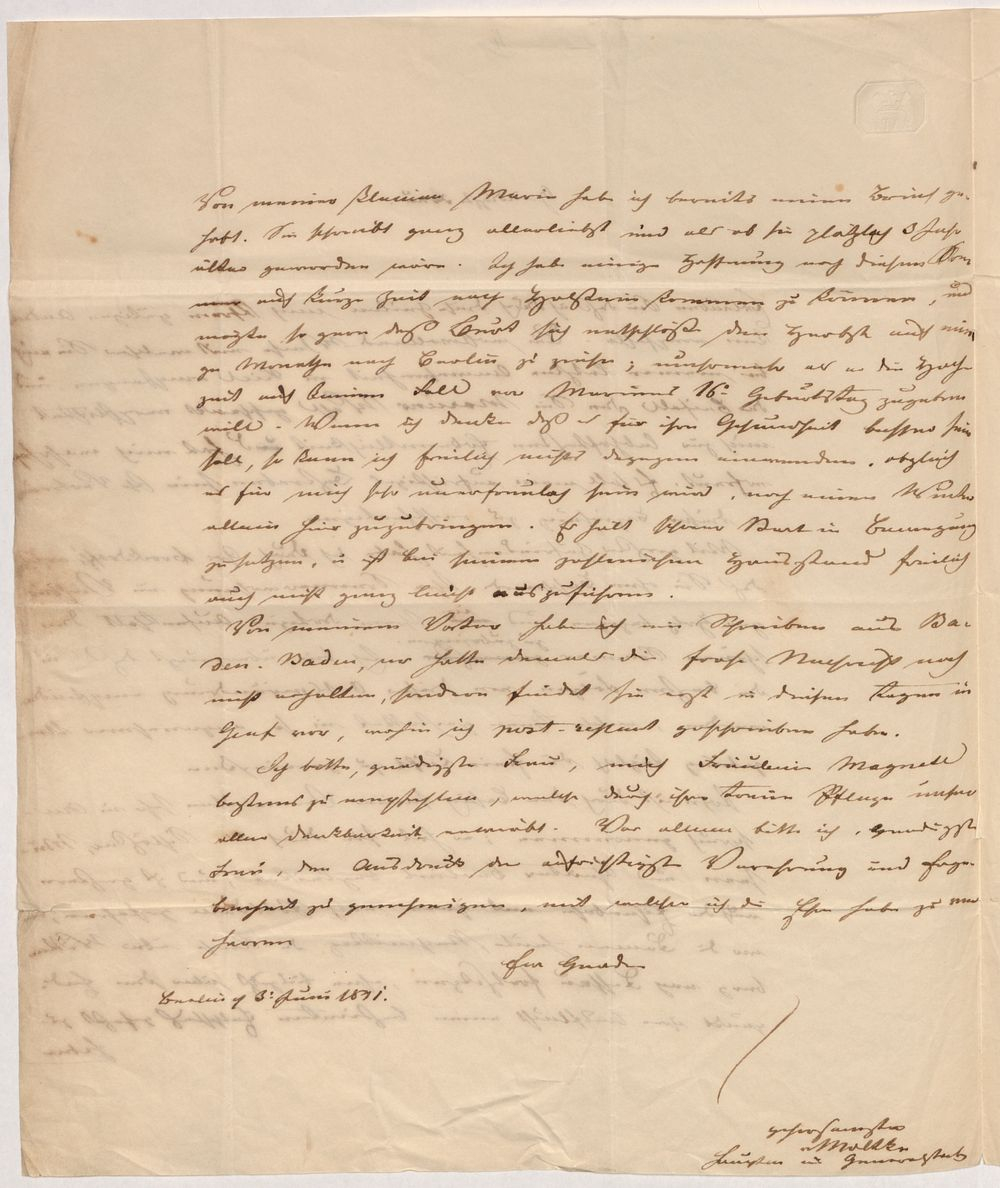 Von meiner kleinen Marie habe ich bereits einen Brief ge-
habt. Sie schreibt ganz allerliebst und als ob sie plötzlich 3 Jahr
älter geworden wäre. Ich habe einige Hoffnung noch diesen Som-
mer auf kurze Zeit nach Holstein kommen zu können, und
mögte so gern daß Burt sich entschlöße den Herbst auf einige
Monathe nach Berlin zu ziehe; umsomehr als er die Hoch-
zeit auf keinen Fall vor Mariens 16t Geburtstag zugeben
will. Wenn ich denke daß es für ihre Gesundheit besser sein
soll, so kann ich freilich nichts dagegen einwenden, obgleich
es für mich sehr unerfreulich sein wird, noch einen Winter
allein hier zuzubringen. Es hält schwer Burt in Bewegung
zu setzen, u ist bei seinem zahlreichen Hausstand freilich
auch nicht ganz leicht auszuführen.
Von meinem Vater habe ich ein Schreiben aus Ba-
den-Baden, er hatte damals die frohe Nachricht noch
nicht erhalten, sondern findet sie erst in diesen Tagen in
Genf vor, wohin ich post-restant geschrieben habe.
Ich bitte, gnädigste Frau, mich Fräulein Magnell
bestens zu empfehlen, welche durch ihre treue Pflege unser
aller Dankbarkeit erwirbt. Vor allem bitte ich, gnädigste
Frau, den Ausdruck der aufrichtigste Verehrung und Erge-
benheit zu genehmigen, mit welcher ich die Ehre habe zu ver-
harren
Euer Gnaden
Berlin d 3t Juni 1841.
gehorsamster
v Moltke
Hauptm im Generalstab